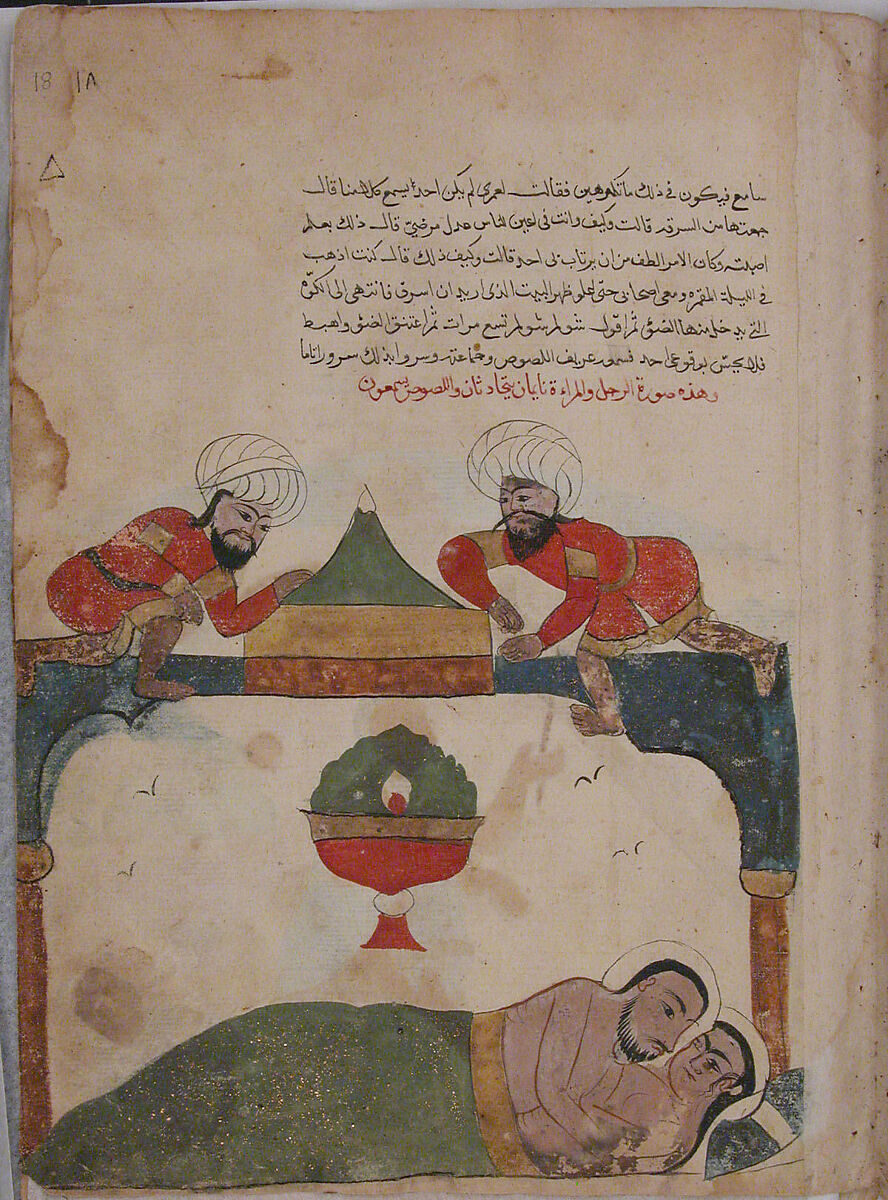 18 ١٨
سامع فيكون في ذلك ما تكرهين فقالت لعمري لم يكن احدا يسمع كلامنا قال
جمعتها من السرقه قالت وكيف وانت في اعين الناس عدل مرضيّ قال ذلك بعلم
اصبته وكان الامر الطف من ان يرتاب بي احد قالت وكيف ذلك قال كنت اذهب
في الليلة المقمره ومعي اصحابي حتى اعلو ظهر البيت الذي اريد ان اسرق فانتهى الى الكوّه
التي يدخل منها الضوّ ثم اقول شولم شولم تسع مرات ثم اعتنق الضوّ واهبط
فلا يحس بوقوعي احد فسمع عريف اللصوص وجماعته وسروا بذلك سرورا تاما
وهذه صورة الرجل والمراءة نايمان يتحادثان واللصوص يسمعون